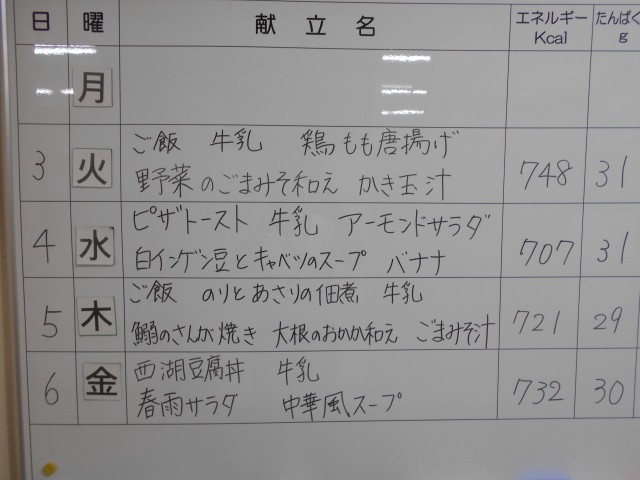 日 曜 献立名 エネルギー Kcal たんぱく g
月
3 火 ご飯 牛乳 鶏もも唐揚げ
野菜のごまみそ和え かき玉汁 748 31
4 水 ピザトースト 牛乳 アーモンドサラダ
白インゲン豆とキャベツのスープ バナナ 707 31
5 木 ご飯 のりとあさりの佃煮 牛乳
鰯のさんが焼き 大根のおかか和え ごまみそ汁 721 29
6 金 西湖豆腐丼 牛乳
春雨サラダ 中華風スープ 732 30